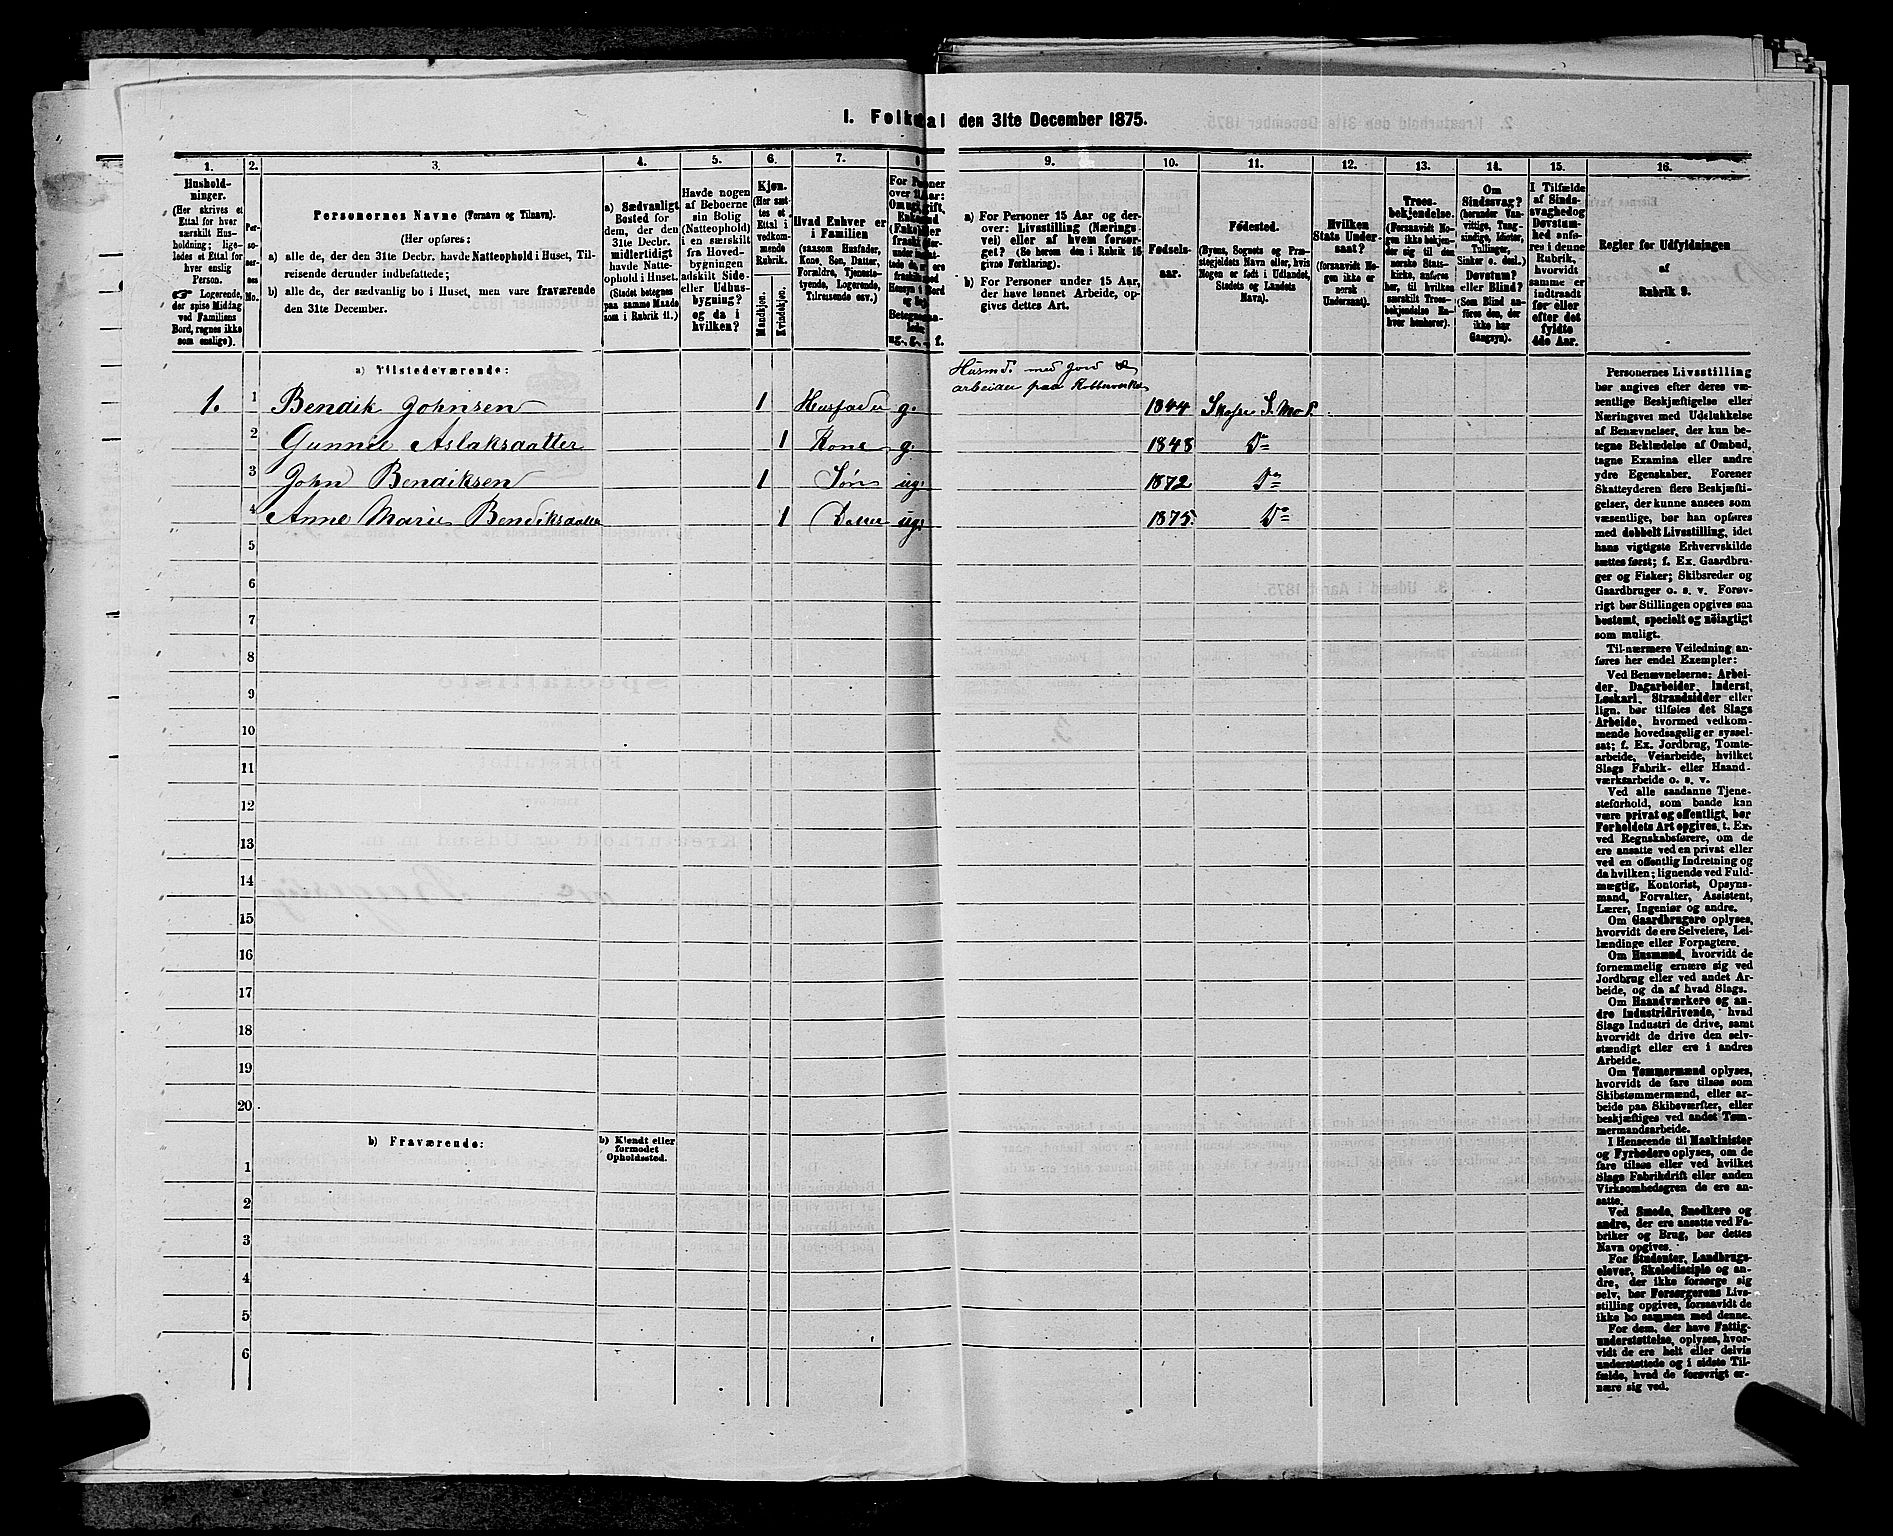 1. Folketal den 31te December 1875.
1. 2. 3. 4. 5. 6. 7. 8. 9. 10. 11. 12. 13. 14. 15. 16.
Hushold-
ninger.
(Her skrives et
Ettal for hver
særskilt Hus-
holdning; lige-
ledes et Ettal for
hver enslig
Person.
☞ Logerende,
der spise Middag
ved Familiens
Bord, regnes ikke
som enslige).
Per-
so-
ner-
nes
No.
Personernes Navne (Fornavn og Tilnavn).
(Her opføres:
a) alle de, der den 31te Decbr. havde Natteophold i Huset, Til-
reisende derunder indbefattede;
b) alle de, der sædvanlig bo i Huset, men vare fraværende
den 31te December.
a) Sædvanligt
Bosted for
dem, der den
31te Decbr.
midlertidigt
havde Natte-
ophold i Huset.
(Stedet betegnes
paa samme Maade
som i Rubrik 11.)
Havde nogen
af Beboerne
sin Bolig
(Natteophold)
i en særskilt
fra Hoved-
bygningen
adskilt Side-
eller Udhus-
bygning?
og da i
hvilken?
Kjøn.
(Her sæt-
tes et
Ettal i
vedkom-
mende
Rubrik.
Mandkjøn.
Kvindekjøn.
Hvad Enhver er
i Familien
(saasom Husfader,
Kone, Søn, Datter,
Forældre, Tjeneste-
tyende, Logerende,
Tilreisende osv.)
ug., g., f.
a) For Personer 15 Aar og der-
over: Livsstilling (Nærings-
vei) eller af hvem forsør-
get (Se herom den i Rubrik 16
givne Forklaring).
b) For Personer under 15 Aar,
der have lønnet Arbeide, op-
gives dettes Art.
Fødsels-
aar.
Fødested.
(Byens, Sognets og Præ-
stegjeldets Navn eller, hvis
Nogen er født i Udlandet,
Stedets og Landets
Navn.)
Hvilken
Stats Under-
saat?
(forsaavidt No-
gen ikke er
norsk
Undersaat).
Troes-
bekjendelse.
(Forsaavidt No-
gen ikke beken-
der sig til den
norske Stats-
kirke, anføres
her, til hvilken
særskilt Troes-
bekjendelse En-
hver henhører).
Om
Sindssvag?
(herunder Van-
vittige, Tung-
sindige, Idioter,
Tullinger,
Sinker o. desl.)
Døvstum?
eller Blind?
(Som Blind an-
føres den, der
ikke har
Gangsyn).
I Tilfælde
af Sinds-
svaghed og
Døvstum-
hed anfø-
res i denne
Rubrik,
hvorvidt
samme er
indtraadt
før eller
efter det
fyldte
4de Aar.
Regler for Udfyldningen
af
Rubrik 9.
a) Tilstedeværende:
Husmd. med Jord &
arbeider paa Kobberværket
1. 1 Bendik Johnsen 1 Husfader g. 1844
2 Gunnil Aslaksdatter 1 Kone g. 1848 Do
3 John Bendiksen 1 Søn ug. 1872 Do
4 Anne Marie Bendiksdatter 1 Datter ug. 1875. Do
5
6
7
8
9
10
11
12
13
14
15
16
17
18
19
20
b) Fraværende:
b) Kjendt eller
formodet
Opholdssted.
1
2
3
4
5
6
Personernes Livsstilling
bør angives efter deres væ-
sentlige Beskjæftigelse eller
Næringsvei med Udelukkelse
af Benævnelser, der kun be-
tegne Beklædelse af Ombud,
tagne Examina eller andre
ydre Egenskaber. Forener
Skatteyderen flere Beskjæfti-
gelser, der kunne ansees som
væsentlige, bør han opføres
med dobbelt Livsstilling, idet
hans vigtigste Erhvervskilde
sættes først; f. Ex. Gaardbru-
ger og Fisker; Skibsreder og
Gaardbruger o. s. v. Forøv-
rigt bør Stillingen opgives saa
bestemt, specielt og nøiagtigt
som muligt.
Til nærmere Veiledning an-
føres her endel Exempler:
Ved Benævnelserne: Arbei-
der, Dagarbeider, Inderst,
Løskarl, Strandsidder eller
lign. bør tilføies det Slags
Arbeide, hvormed vedkom-
mende hovedsagelig er syssel-
sat; f. Ex. Jordbrug, Tomte-
arbeide, Veiarbeide, hvilket
Slags Fabrik- eller Haand-
værksarbeide o. s. v.
Ved alle saadanne Tjene-
steforhold, som baade kan
være privat og offentligt, bør
Forholdets Art opgives, t. Ex.
ved Regnskabsførere, om de
ere ansatte ved en privat eller
ved en offentlig Indretning og
da hvilken; lignende ved Fuld-
mægtig, Kontorist, Opsyns-
mand, Forvalter, Assistent,
Lærer, Ingeniør og andre.
Om Gaardbrugere oplyses,
hvorvidt de ere Selveiere, Lei-
lændinge eller Forpagtere.
Om Husmænd, hvorvidt de
fornemmelig ernære sig ved
Jordbrug eller ved andet Ar-
beide, og da af hvad Slags.
Om Haandværkere og an-
dre Industridrivende, hvad
Slags Industri de drive, samt
hvorvidt de drive den selv-
stændigt eller ere i andres
Arbeide.
Om Tømmermænd oplyses,
hvorvidt de fare tilsøs som
Skibstømmermænd, eller ar-
beide paa Skibsværfter, eller
beskjæftiges ved andet Tøm-
mermandsarbeide.
I Henseende til Maskinister
og Fyrbødere oplyses, om de
fare tilsøs eller ved hvilket
Slags Fabrikdrift eller anden
Virksomhedsgren de ere an-
satte.
Ved Smede, Snedkere og
andre, der ere ansatte ved Fa-
briker og Brug, bør dettes
Navn opgives.
For Studenter, Landbrugs-
elever, Skoledisciple og an-
dre, der ikke forsørge sig
selv, bør Forsørgerens Livs-
stilling opgives, forsaavidt de
ikke bo sammen med denne.
For dem, der have Fattig-
understøttelse, oplyses, hvor-
vidt de ere helt eller delvis
understøttede og i sidste Til-
fælde, hvad de forøvrigt er-
nære sig ved.